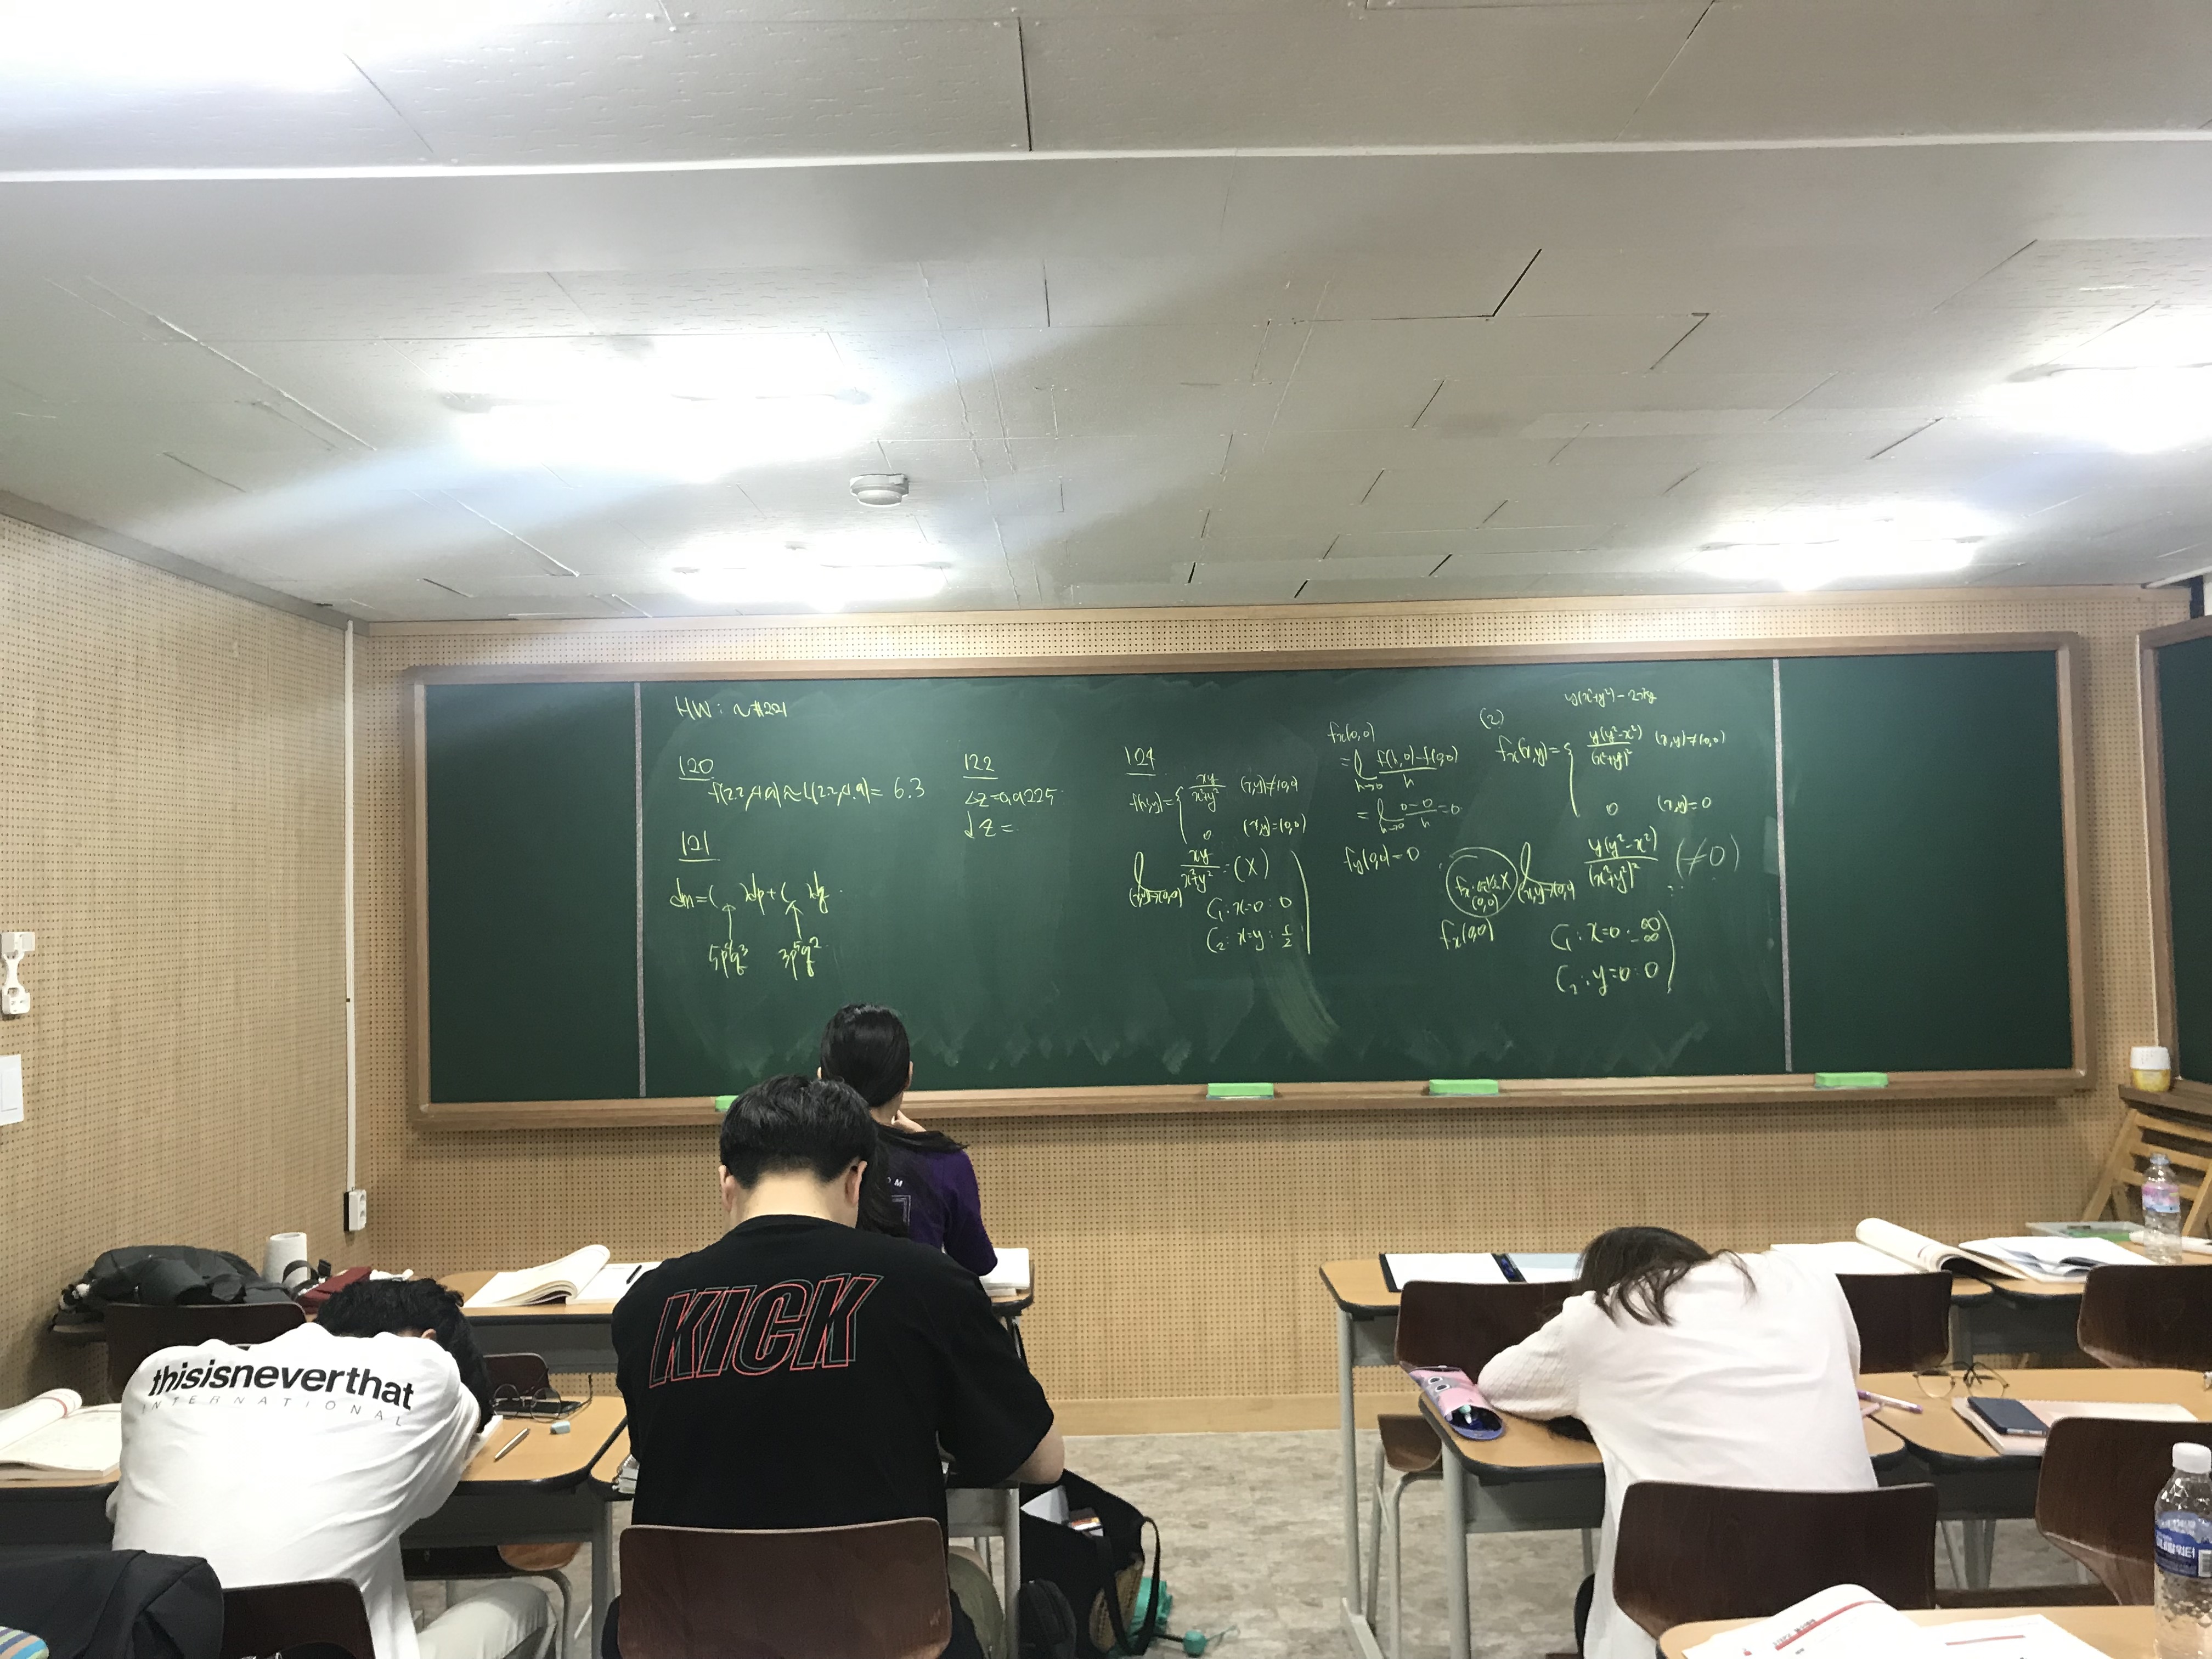 HW: ~#221
120
f(2.2, 4.9) ≈ L(2.2, 4.9) = 6.3
121
dm = (   )dp + (   )dq
5p⁴q³   3p⁵q²
122
ΔZ = 0.9225
dZ =
124
f(x,y) = { xy/(x²+y²)   (x,y)≠(0,0)
0   (x,y)=(0,0)
lim (x,y)→(0,0) xy/(x²+y²) = (X)
C₁: x=0 : 0
C₂: x=y : 1/2
fx(0,0)
= lim h→0 (f(h,0)-f(0,0))/h
= lim h→0 (0-0)/h = 0
fy(0,0) = 0
y(x²+y²) - 2x²y
(2)
fx(x,y) = { y(y²-x²)/(x²+y²)²   (x,y)≠(0,0)
0   (x,y)=0
lim (x,y)→(0,0) y(y²-x²)/(x²+y²)²   (≠0)
(0,0)
fx(0,0)
C₁: x=0 : ∞
-∞
C₂: y=0 : 0
thisisneverthat
INTERNATIONAL
KICK